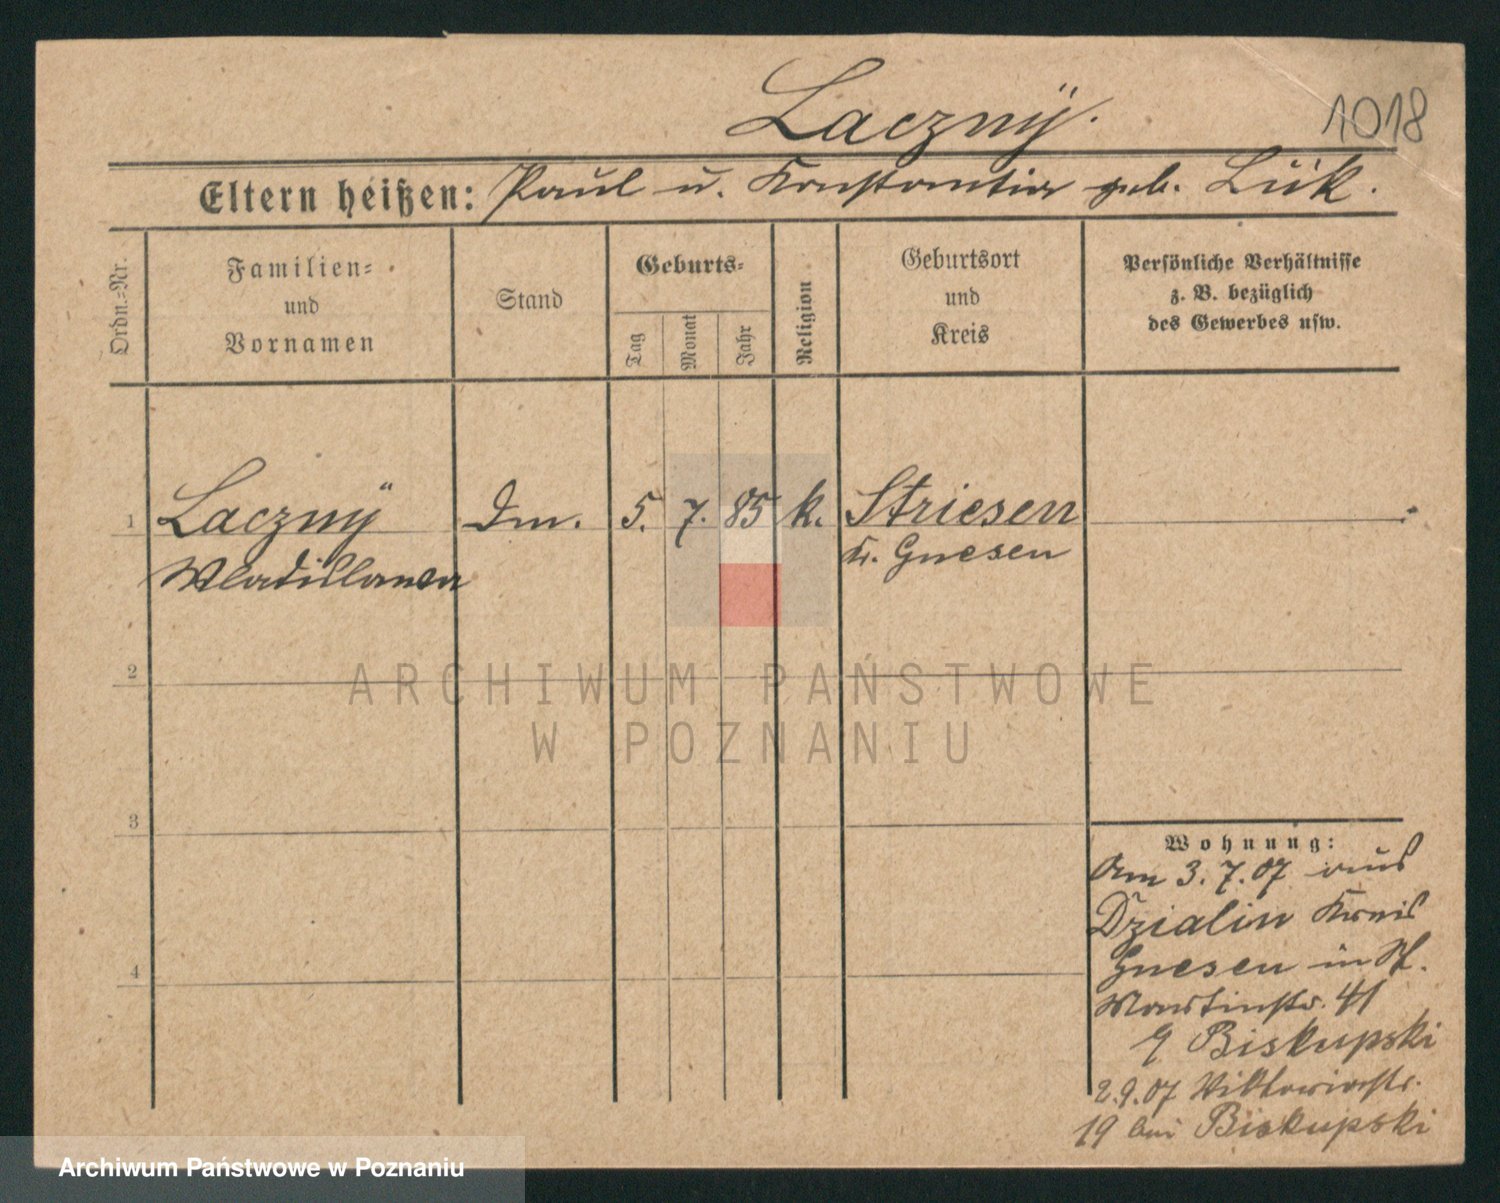 Laczny.
1018
Eltern heißen: Paul u. Konstantia geb. Lük.
Ordn.-Nr.
Familien-
und
Vornamen
Stand
Geburts-
Tag
Monat
Jahr
Religion
Geburtsort
und
Kreis
Persönliche Verhältnisse
z. B. bezüglich
des Gewerbes usw.
1 Laczny Dm. 5. 7. 85 k. Striesen
Wladislawa Kr. Gnesen
2
ARCHIWUM PAŃSTWOWE
W POZNANIU
3
Wohnung:
Am 3.7.07 aus
Dzialin Kreis
Gnesen in St.
Martinstr. 41
Biskupski
4
2.9.07 Viktoriastr.
19 bei Biskupski
Archiwum Państwowe w Poznaniu